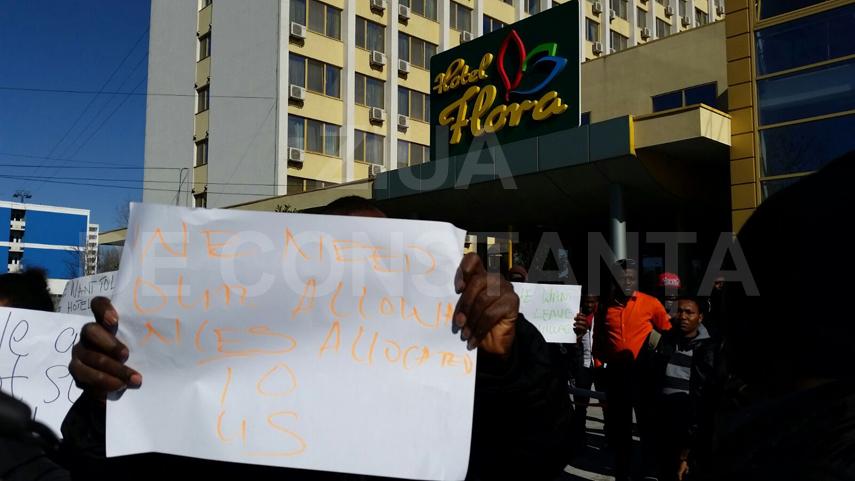 Hotel
Flora
ZIUA
DE CONSTANTA
WE NEED
OUR ALLOWA
NCES ALLOCATED
TO
US
WANT TO L
HOTEL
WE WAN
LEAVE